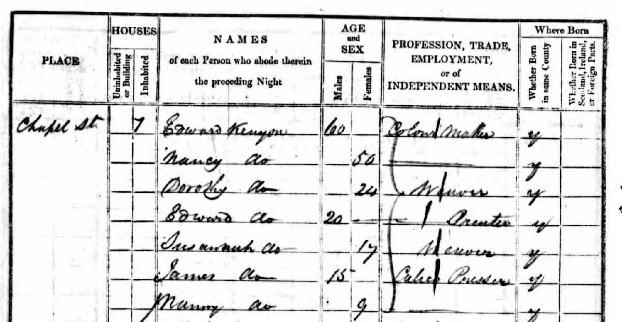 PLACE
HOUSES
Uninhabited or Building
Inhabited
NAMES
of each Person who abode therein
the preceding Night
AGE
and
SEX
Males
Females
PROFESSION, TRADE,
EMPLOYMENT,
or of
INDEPENDENT MEANS.
Where Born
Whether Born
in same County
Whether Born in
Scotland, Ireland,
or Foreign Parts.
Chapel St 1 Edward Kenyon 60 Colour Maker y
Nancy do 50 y
Dorothy do 24 Weaver y
Edward do 20 Printer y
Susannah do 17 Weaver y
James do 15 Calico Presser y
Nancy do 9 y